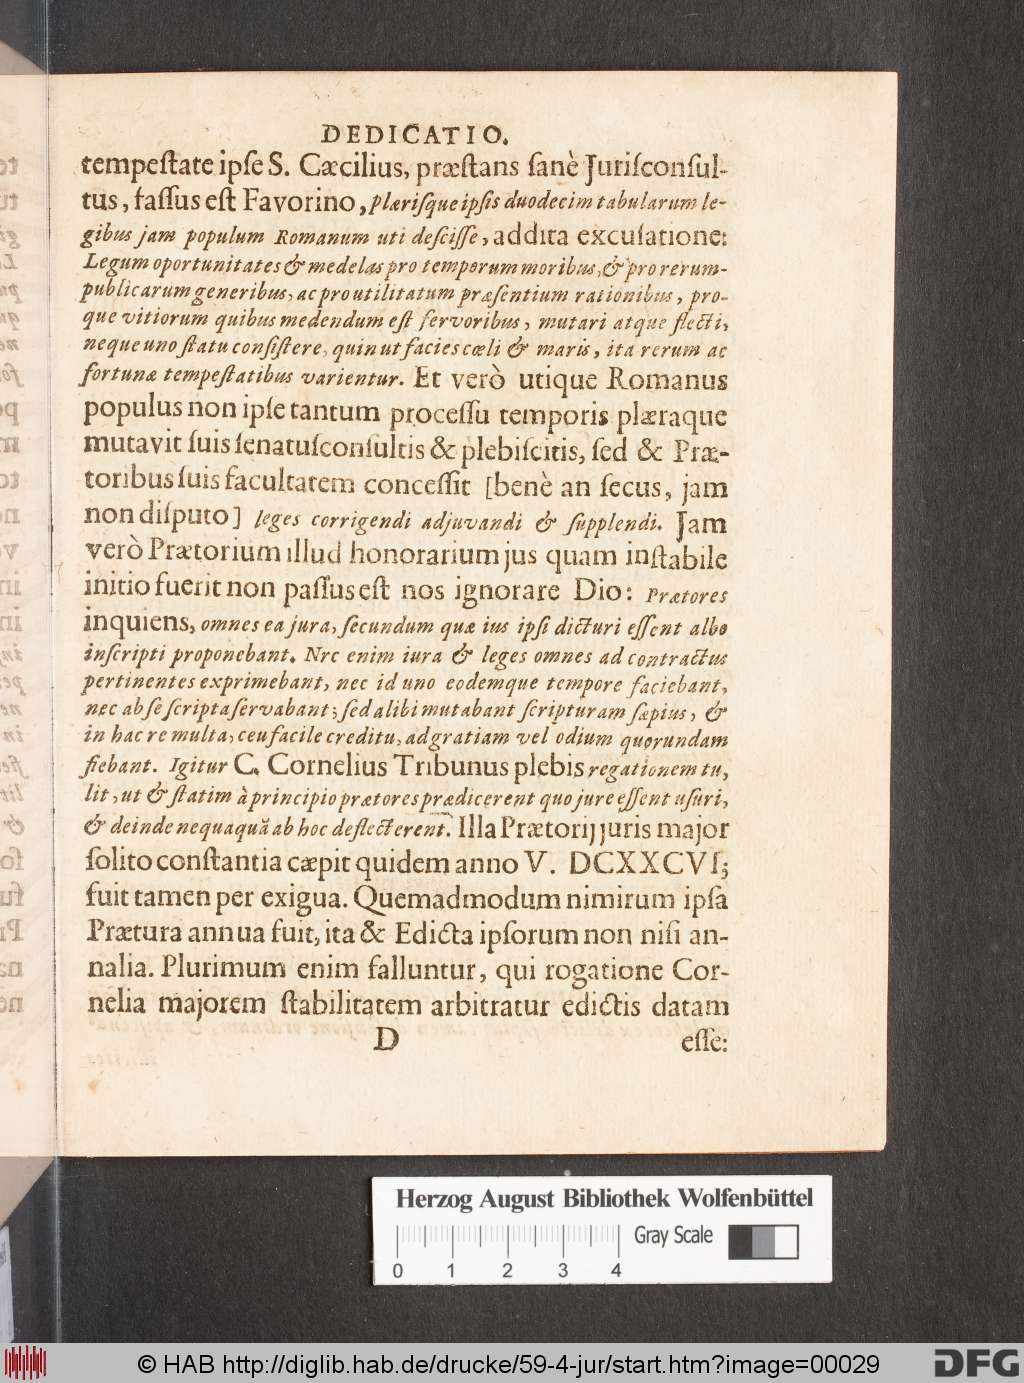 DEDICATIO.
tempeſtate ipſe S. Cæcilius, præſtans ſanè Juriſconſul-
tus, faſſus eſt Favorino, plæriſque ipſis duodecim tabularum le-
gibus jam populum Romanum uti deſciſſe, addita excuſatione:
Legum oportunitates & medelas pro temporum moribus, & pro rerum-
publicarum generibus, ac pro utilitatum præſentium rationibus, pro-
que vitiorum quibus medendum eſt fervoribus, mutari atque flecti,
neque uno ſtatu conſiſtere, quin ut facies cœli & maris, ita rerum ac
fortunæ tempeſtatibus varientur. Et verò utique Romanus
populus non ipſe tantum proceſſu temporis plæraque
mutavit ſuis ſenatuſconſultis & plebiſcitis, ſed & Præ-
toribus ſuis facultatem conceſſit [benè an ſecus, jam
non diſputo] leges corrigendi adjuvandi & ſupplendi. Jam
verò Prætorium illud honorarium jus quam inſtabile
initio fuerit non paſſus eſt nos ignorare Dio: Prætores
inquiens, omnes ea jura, ſecundum quæ ius ipſi dicturi eſſent albo
inſcripti proponebant. Nrc enim iura & leges omnes ad contractus
pertinentes exprimebant, nec id uno eodemque tempore faciebant,
nec ab ſe ſcripta ſervabant; ſed alibi mutabant ſcripturam ſæpius, &
in hac re multa, ceu facile creditu, ad gratiam vel odium quorundam
fiebant. Igitur C. Cornelius Tribunus plebis regationem tu,
lit, ut & ſtatim à principio prætores prædicerent quo jure eſſent uſuri,
& deinde nequaquã ab hoc deflecterent. Illa Prætorij juris major
ſolito conſtantia cæpit quidem anno V. DCXXCVI;
fuit tamen per exigua. Quemadmodum nimirum ipſa
Prætura annua fuit, ita & Edicta ipſorum non niſi an-
nalia. Plurimum enim falluntur, qui rogatione Cor-
nelia majorem ſtabilitatem arbitratur edictis datam
D esſe:
Herzog August Bibliothek Wolfenbüttel
Gray Scale
0 1 2 3 4
© HAB http://diglib.hab.de/drucke/59-4-jur/start.htm?image=00029 DFG